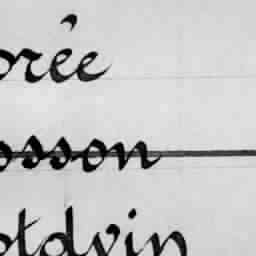 orée
osson
otdvin